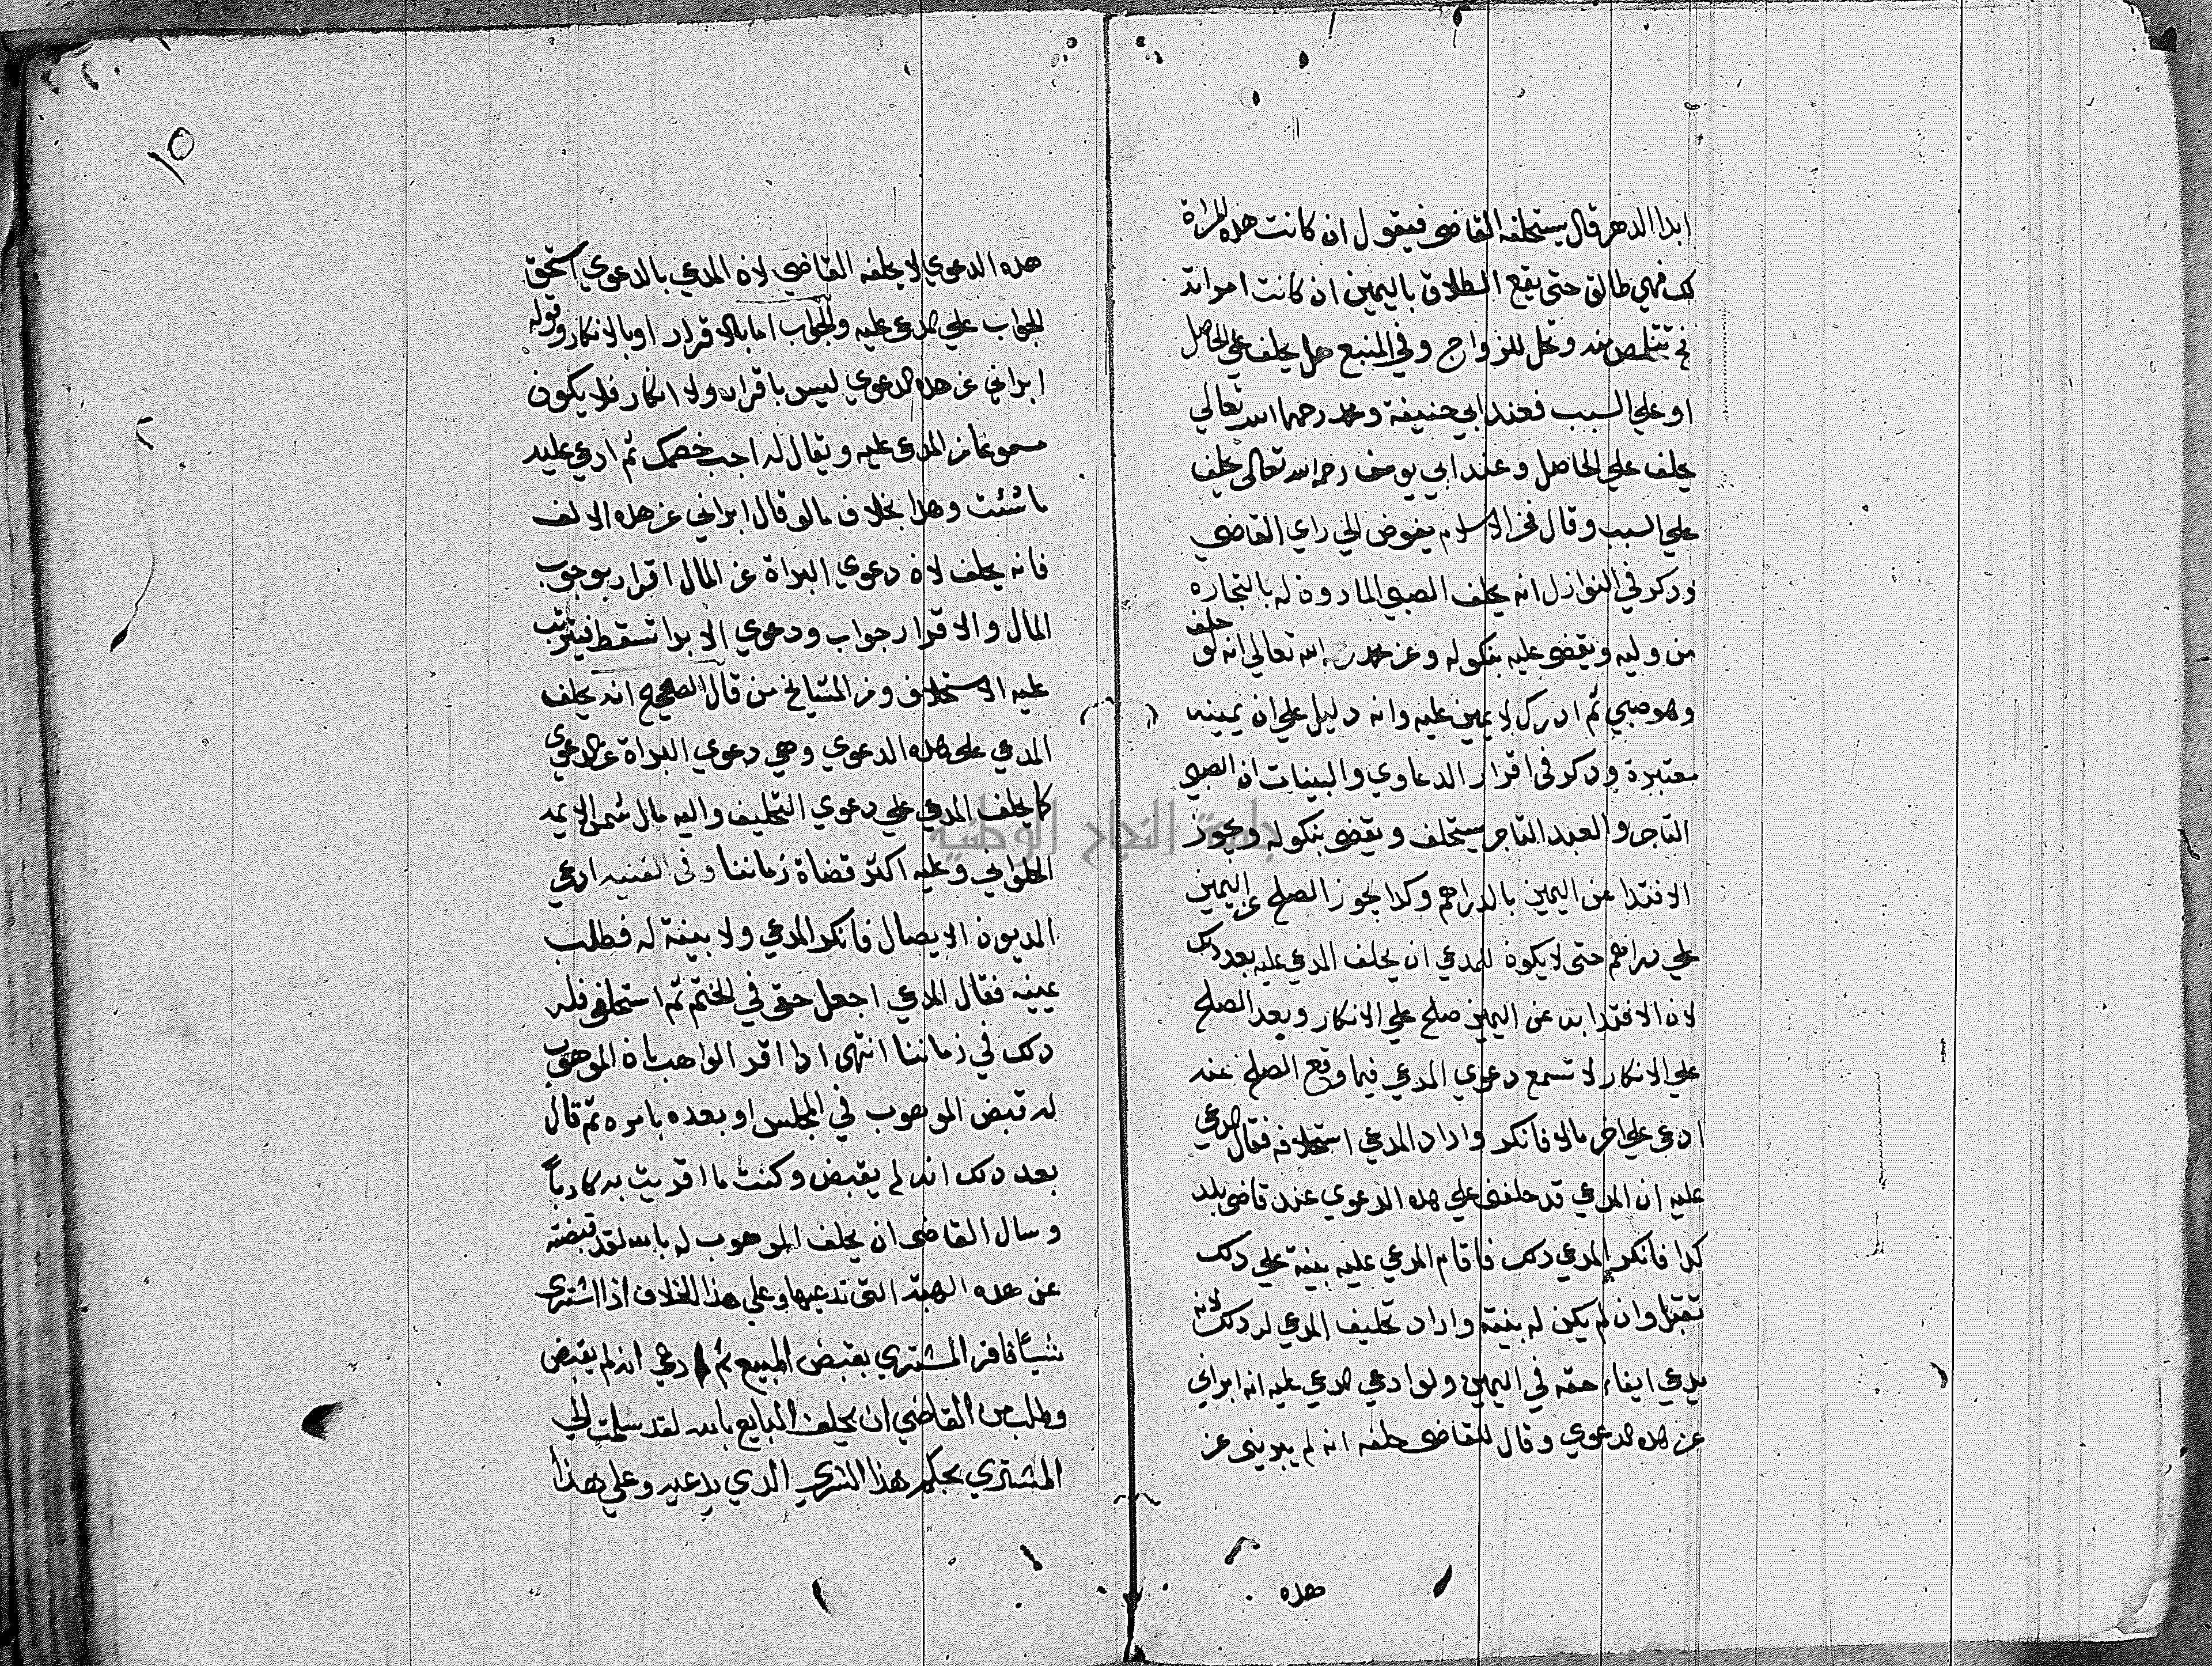 ابدا الدهر قال يستحلفه القاضي فيقول ان كانت هذه المراة
لك فهي طالق حتى يقع الطلاق باليمين ان كانت امراته
فتخلص منه وتحل للزواج وفي المنبع هل يحلف على الحاصل
او على السبب فعند ابي حنيفة ومحمد رحمهما الله تعالي
يحلف علي الحاصل وعند ابي يوسف رحمه الله تعالى يحلف
علي السبب وقال فخر الاسلام يفوض الي راي القاضي
ودكر في النوازل انه يحلف الصبي المادون له بالتجاره
من وليه ويقضى عليه بنكوله وعن محمد رحمه الله تعالي انه لو حلف
وهو صبي ثم ادرك لا يمين عليه وانه دليل علي ان يمينه
معتبرة ودكر في اقرار الدعاوي والبينات ان الصبي
التاجر والعبد التاجر يستحلف ويقضى بنكوله ويجوز
الافتدا عن اليمين بالدراهم وكدا يجوز الصلح عن اليمين
علي دراهم حتى لا يكون للمدعي ان يحلف المدعي عليه بعد دلك
لان الافتدا به عن اليمين صلح علي الانكار وبعد الصلح
علي الانكار لا تسمع دعوي المدعي فيما وقع الصلح عنه
ادعى علي اخر مالا فانكر واراد المدعي استحلافه فقال المدعي
عليه ان المدعي قد حلفني علي هده الدعوي عند قاضي بلد
كدا فانكر المدعي دلك فاقام المدعي عليه بينة علي دلك
تقبل وان لم يكن له بينة واراد تحليف المدعي له دلك لانه
يدعي ايفاء حقه في اليمين ولو ادعي المدعي عليه انه ابراني
عن هده الدعوي وقال للقاضي حلفه انه لم يبريني عن
هده
١٥
هده الدعوي لا يحلفه القاضي لان المدعي بالدعوي استحق
الجواب علي المدعى عليه والجواب اما بالاقرار او بالانكار وقوله
ابراني عن هده الدعوي ليس باقرار ولا انكار فلا يكون
مسموعا من المدعى عليه ويقال له اجب خصمك ثم ادعي عليه
ما شئت وهدا بخلاف مالو قال ابراني عن هده الالف
فانه يحلف لان دعوي البراة عن المال اقرار بوجوب
المال والاقرار جواب ودعوي الابرا تسقط فيترتب
عليه الاستحلاف ومن المشايخ من قال الصحيح انه يحلف
المدعي على هده الدعوي وهي دعوي البراة عن الدعوى
كما يحلف المدعي علي دعوي التحليف واليه مال شمس الايمه
الحلواني وعليه اكثر قضاة زماننا وفي القنيه ادعي
المديون الايصال فانكر المدعي ولا بينة له فطلب
يمينه فقال المدعي اجعل حقي في الختم ثم استحلفني فله
دلك في زماننا انتهى ادا اقر الواهب بان الموهوب
له قبض الموهوب في المجلس او بعده بامره ثم قال
بعد دلك انه لم يقبض وكنت ما اقريت به كادبا
وسال القاضي ان يحلف الموهوب له بالله لقد قبضته
عن هده الهبة التي تدعيها وعلي هذا الخلاف اذا اشترى
شيئا فاقر المشتري بقبض المبيع ثم ادعي انه لم يقبض
وطلب من القاضي ان يحلف البايع بالله لقد سلمت الي
المشتري بحكم هذا الشري الدي يدعيه وعلي هذا
جامعة النجاح الوطنية